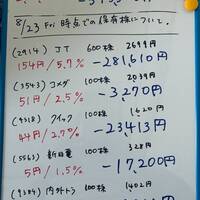 8/23 Fri 時点での保有株について。
(2914) JT 600株 2699円
154円/5.7% -281,610円
(3543) コメダ 100株 2039円
51円/2.5% -3270円
(9318) クイック 100株 1620円
44円/2.7% -23413円
(5563) 新日電 100株 328円
5円/1.5% -17,200円
(9384) 内外トラ 100株 1402円